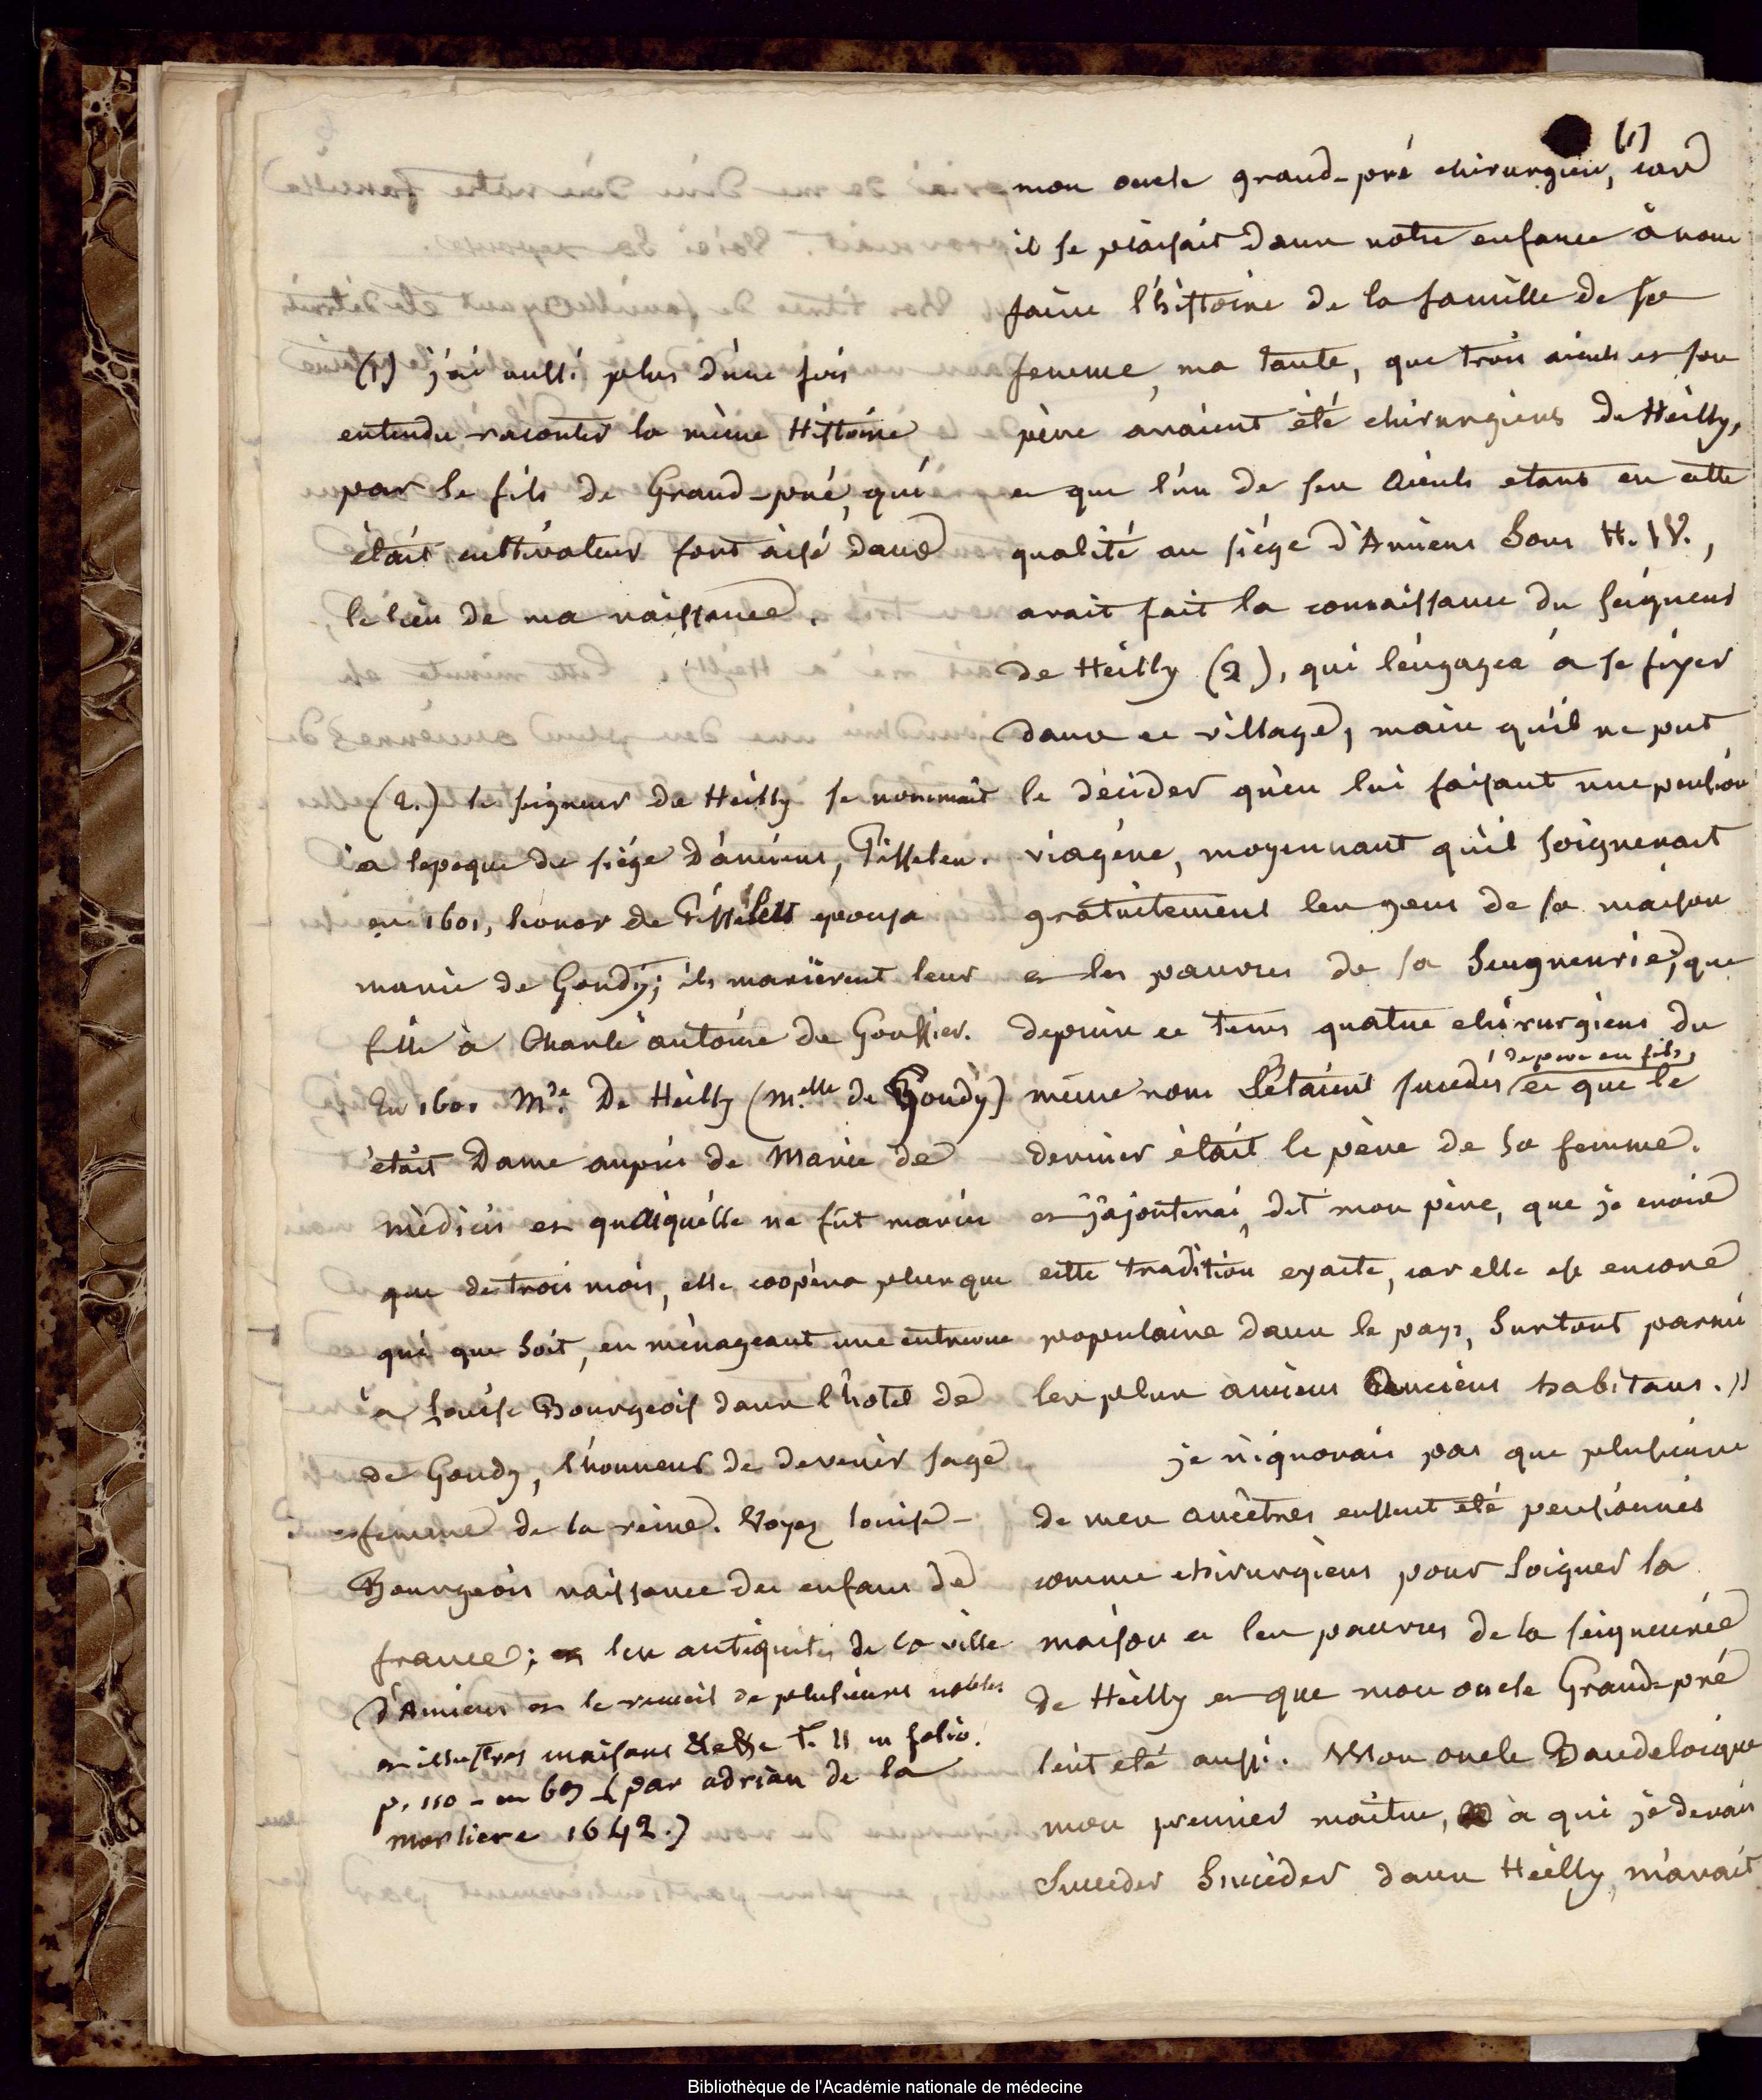 mon oncle grand-pré chirurgien, (1) car
il se plaisait dans notre enfance à nous
faire l'histoire de la famille de sa
femme, ma tante, que trois aieuls et son
père avaient été chirurgiens de Heilly,
et que l'un de ses aieuls etant en cette
qualité au siége d'Amiens sous H. IV.,
avait fait la connaissance du seigneur
de Heilly (2), qui l'engagea à se fixer
dans ce village, mais qu'il ne put
le décider qu'en lui faisant une pension
viagère, moyennant qu'il soignerait
gratuitement les gens de sa maison
et les pauvres de sa seugneurie; que
depuis ce tems quatre chirurgiens du
même nom s'étaient succedés, de pere en fils, et que le
dernier était le père de sa femme.
et j'ajouterai, dit mon père, que je crois
cette tradition exacte, car elle est encore
populaire dans le pays, surtout parmi
les plus anciens anciens habitans. »
je n'ignorais pas que plusieurs
de mes ancêtres eussent été pensionnés
comme chirurgiens pour soigner la
maison et les pauvres de la seigneurie
de Heilly et que mon oncle Grand-pré
l'eût eté aussi. Mon oncle Baudelocque
mon premier maître, à qui je devais
succeder succéder dans Heilly, m'avait
(1) j'ai aussi plus d'une fois
entendu raconter la même Histoire
par le fils de Grand-pré, qui
était cultivateur fort aisé dans
le lieu de ma naissance.
(2.) le seigneur de Heilly se nommait
à lepoque du siége d'amiens, Pisseleu.
en 1601, leonor de Pisseleu epousa
marie de Gondy; ils marièrent leur
fille à Charle antoine de Gouffier.
En 1601 Mde. De Heilly (m.elle de Gondy)
était Dame auprès de Marie de
médicis et quoiqu'elle ne fût mariée
que de trois mois, elle coopéra plus que
qui que soit, en ménageant une entrevue
à Louise Bourgeois dans l'hotel de
de Gondy, l'honneur de devenir sage
femme de la reine. Voyez louise-
Bourgeois naissance des enfans de
france; les antiquités de la ville
d'Amiens et le recueil de plusieurs nobles
et illustres maisons &a &a T. II in folio.
p. 110 - (par adrian de la
morliere 1642.)
Bibliothèque de l'Académie nationale de médecine